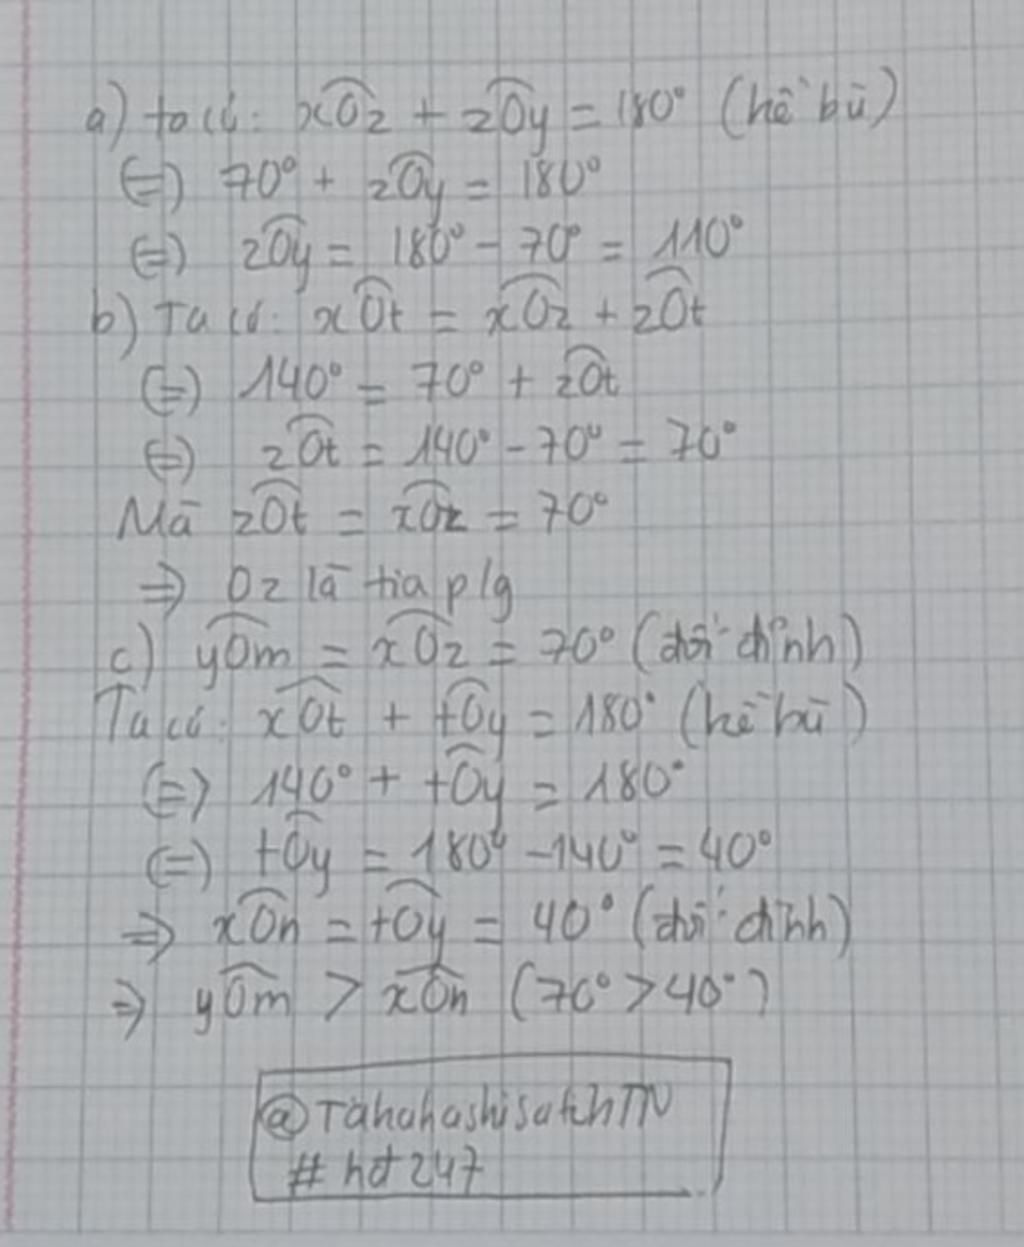 a) ta có: xOz + zOy = 180° (kề bù)
(=) 70° + zOy = 180°
(=) zOy = 180° - 70° = 110°
b) Ta có: xOt = xOz + zOt
(=) 140° = 70° + zOt
(=) zOt = 140° - 70° = 70°
Mà zOt = xOz = 70°
=> Oz là tia p/g
c) yOm = xOz = 70° (đối đỉnh)
Ta có: xOt + tOy = 180° (kề bù)
(=) 140° + tOy = 180°
(=) tOy = 180° - 140° = 40°
=> xOn = tOy = 40° (đối đỉnh)
=> yOm > xOn (70° > 40°)
# hdt247